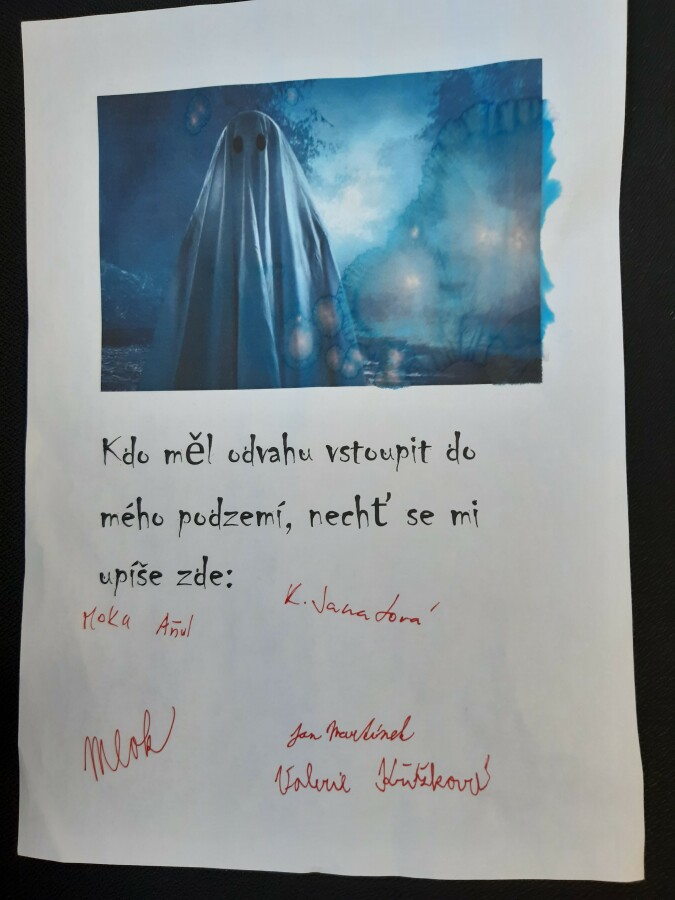 Kdo měl odvahu vstoupit do
mého podzemí, nechť se mi
upíše zde:
Moka
K. Janatová
Mlok
Jan Martínek
Valerie